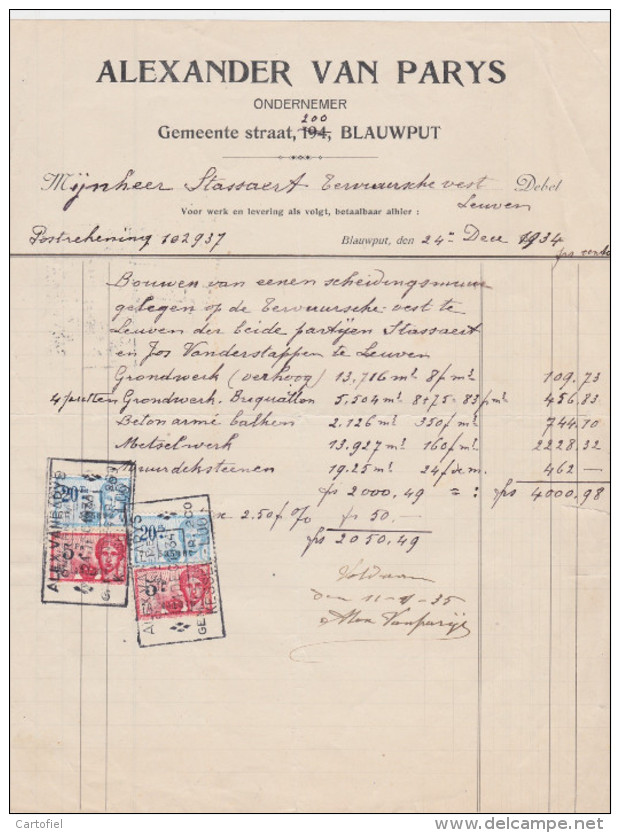 ALEXANDER VAN PARYS
ONDERNEMER
200
Gemeente straat, 194, BLAUWPUT
Mijnheer Stassaert Tervuursche vest Debet
Leuven
Voor werk en levering als volgt, betaalbaar alhier :
Postrekening 102937 Blauwput, den 24en Dec 1934
frs cent
Bouwen van eenen scheidingsmuur
gelegen op de Tervuursche vest te
Leuven der beide partijen Stassaert
en Jos Vanderstappen te Leuven
Grondwerk (verhoog) 13,716 m² 8f m² 109.73
4 putten Grondwerk 5,504 m² 8+75=83f m² 456.83
Beton armé balken 2.126 m² 350f m² 744.10
Metselwerk 13.927 m² 160f m² 2228.32
Muurdeksteenen 19.25 m² 24f de m. 462 —
frs 2000.49 = : frs 4000.98
2.50f % fr 50.—
frs 2050.49
Voldaan
den 11-4-35
Alex Vanparijs
ALEX.VANPARYS
20
5
20
5
Cartofiel
www.delcampe.net